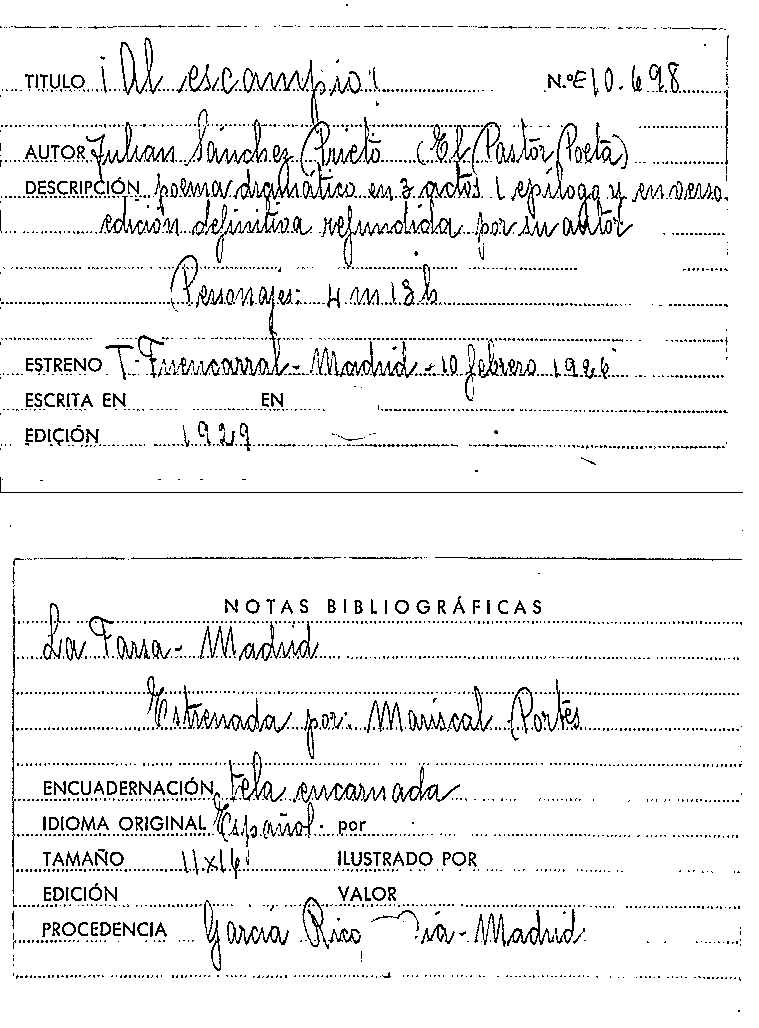 TITULO ¡Al escampío! N.º E 10.698
AUTOR Julian Sánchez Prieto (El Pastor Poeta)
DESCRIPCIÓN poema dramático en 3 actos 1 epílogo y en verso
edición definitiva refundida por su autor
Personajes: 4 m 13 h
ESTRENO T. Fuencarral - Madrid - 10 febrero 1926
ESCRITA EN EN
EDICIÓN 1929
NOTAS BIBLIOGRÁFICAS
La Farsa - Madrid
Estrenada por: Mariscal Portes
ENCUADERNACIÓN tela encarnada
IDIOMA ORIGINAL Español. por
TAMAÑO 11x16 ILUSTRADO POR
EDICIÓN VALOR
PROCEDENCIA García Rico - Madrid